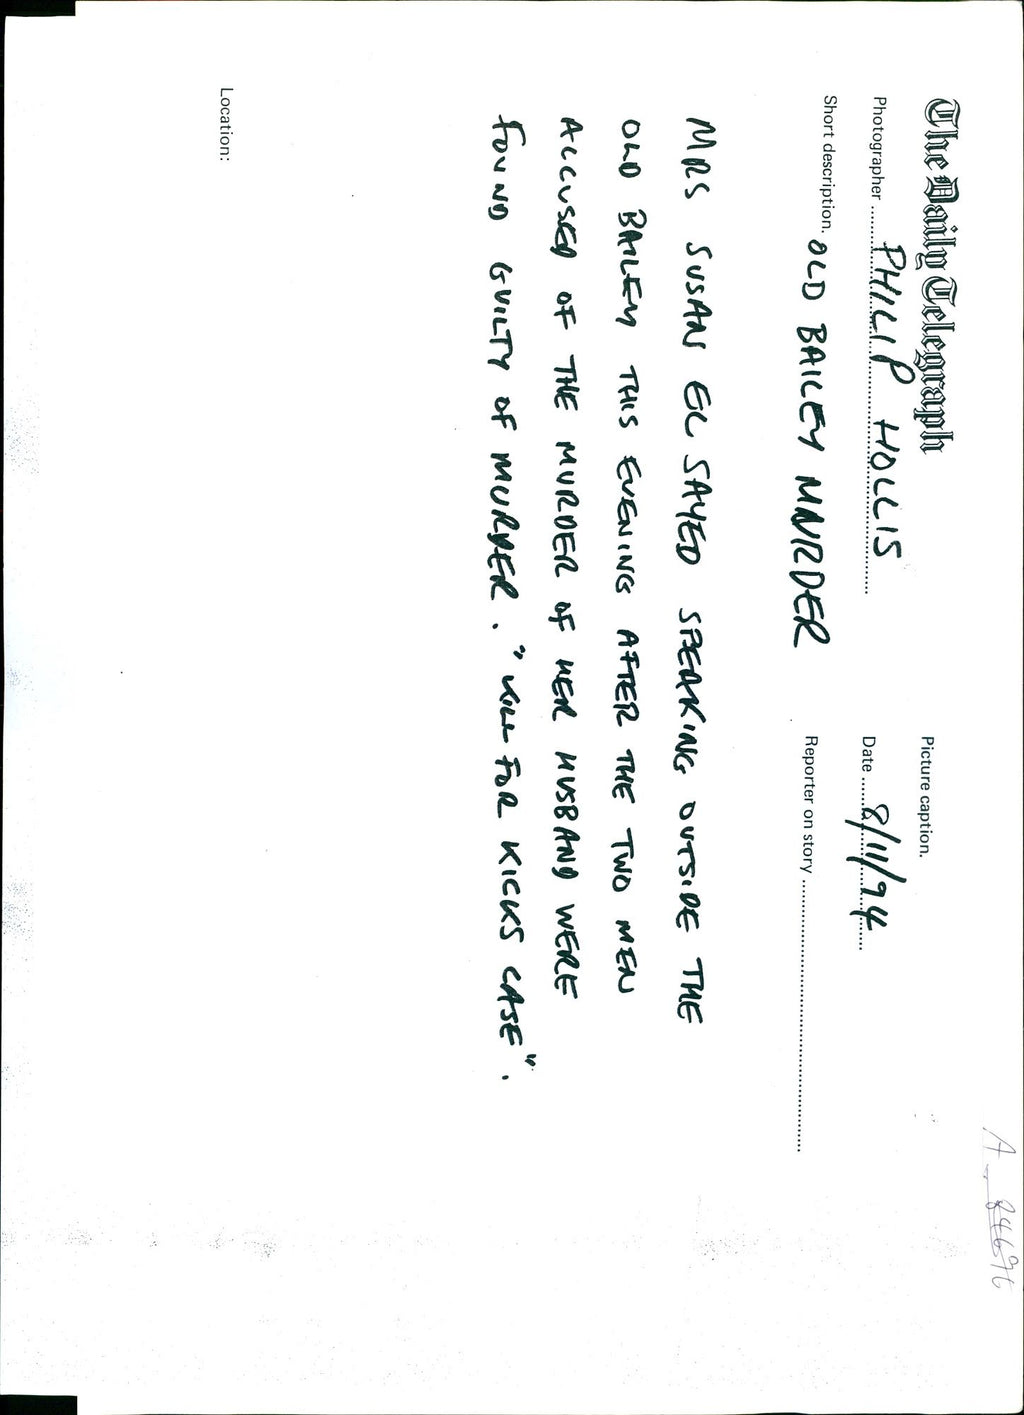 The Daily Telegraph
Picture caption.
Photographer PHILIP HOLLIS
Date 8/11/94
Short description. OLD BAILEY MURDER
Reporter on story
MRS SUSAN EL SAYED SPEAKING OUTSIDE THE
OLD BAILEY THIS EVENING AFTER THE TWO MEN
ACCUSED OF THE MURDER OF HER HUSBAND WERE
FOUND GUILTY OF MURDER. "KILL FOR KICKS CASE".
Location: